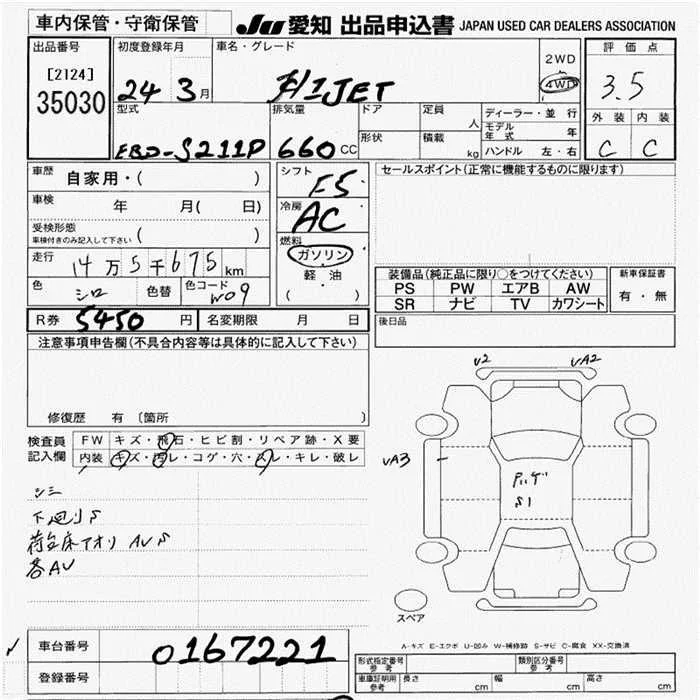 車内保管・守衛保管
JU 愛知 出品申込書 JAPAN USED CAR DEALERS ASSOCIATION
出品番号
[2124]
35030
初度登録年月
24 3月
車名・グレード
HIJET
2WD
4WD
評価点
3.5
外装 内装
C C
型式
EBD-S211P
排気量
660 CC
ドア
形状
定員
人
積載
kg
ディーラー・並行
モデル年式 年
ハンドル 左・右
車歴 自家用・( )
車検 年 月( 日)
受検形態
車検付きのみ記入して下さい ( )
走行 14万5千675km
色 シロ 色替 色コード W09
シフト
F5
冷房
AC
燃料
ガソリン
軽・油
( )
セールスポイント(正常に機能するものに限ります)
装備品(純正品に限り○をつけてください)
PS PW エアB AW
SR ナビ TV カワシート
新車保証書
有・無
R券 5450円 名変期限 月 日
後日品
注意事項申告欄(不具合内容等は具体的に記入して下さい)
修復歴 有〔箇所 〕
検査員記入欄
FW キズ・飛石・ヒビ割・リペア跡・X要
内装 キズ・汚レ・コゲ・穴・スレ・キレ・破レ
シミ
下廻りS
荷台床アオリ AVS
各AV
V2
VA2
VA3
S1
スペア
A-キズ E-エクボ U-凹み W-補修跡 S-サビ C-腐食 XX-交換済
車台番号 0167221
登録番号
形式指定番号 参考
類別区分番号 参考
車庫証明用 参考
長さ cm
幅 cm
高さ cm